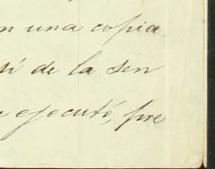 n una copia
sí de la sen
e ejecutó, fue